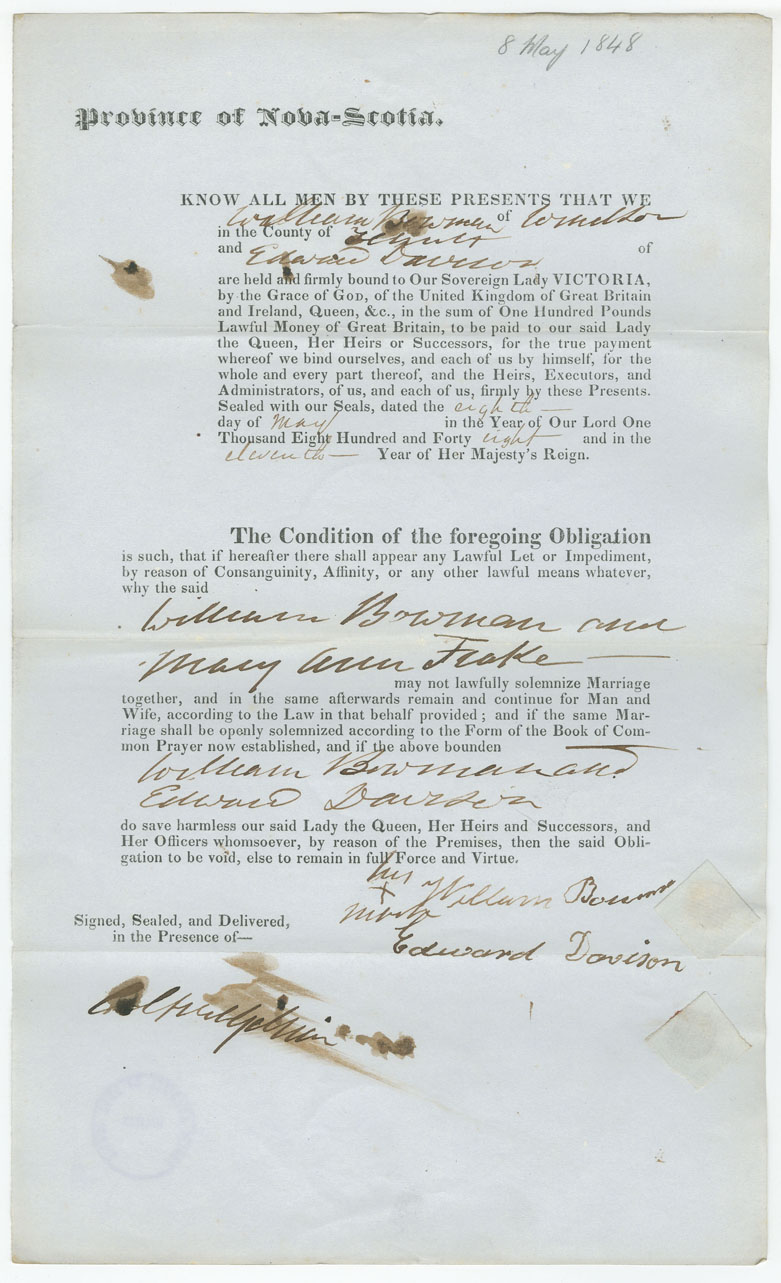 8 May 1848
Province of Nova-Scotia.
KNOW ALL MEN BY THESE PRESENTS THAT WE
William Bowman of Windsor
in the County of
and Edward Davison of
are held and firmly bound to Our Sovereign Lady VICTORIA,
by the Grace of GOD, of the United Kingdom of Great Britain
and Ireland, Queen, &c., in the sum of One Hundred Pounds
Lawful Money of Great Britain, to be paid to our said Lady
the Queen, Her Heirs or Successors, for the true payment
whereof we bind ourselves, and each of us by himself, for the
whole and every part thereof, and the Heirs, Executors, and
Administrators, of us, and each of us, firmly by these Presents.
Sealed with our Seals, dated the eighth —
day of May in the Year of Our Lord One
Thousand Eight Hundred and Forty eight and in the
eleventh — Year of Her Majesty's Reign.
The Condition of the foregoing Obligation
is such, that if hereafter there shall appear any Lawful Let or Impediment,
by reason of Consanguinity, Affinity, or any other lawful means whatever,
why the said
William Bowman and
Mary Ann —
may not lawfully solemnize Marriage
together, and in the same afterwards remain and continue for Man and
Wife, according to the Law in that behalf provided; and if the same Mar-
riage shall be openly solemnized according to the Form of the Book of Com-
mon Prayer now established, and if the above bounden
William Bowman and
Edward Davison
do save harmless our said Lady the Queen, Her Heirs and Successors, and
Her Officers whomsoever, by reason of the Premises, then the said Obli-
gation to be void, else to remain in full Force and Virtue.
his
X William Bowman
mark
Signed, Sealed, and Delivered,
in the Presence of—
Edward Davison